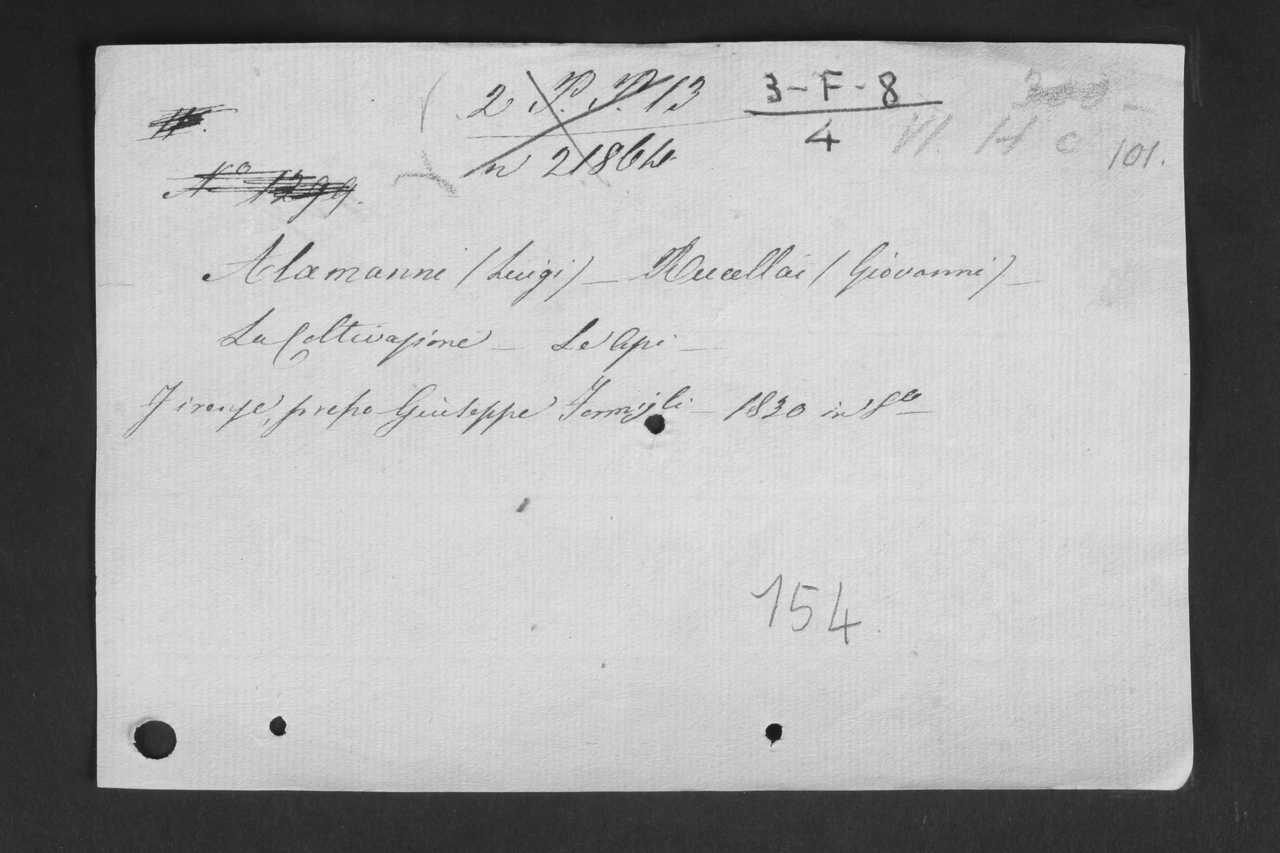 2 P. P. 13
3-F-8
4
VI. H c 101.
n 2186 bis
No 1299.
Alamanni (Luigi) — Rucellai (Giovanni) —
La Coltivazione — Le Api —
Firenze, presso Giuseppe Formigli — 1830 in 8o —
154